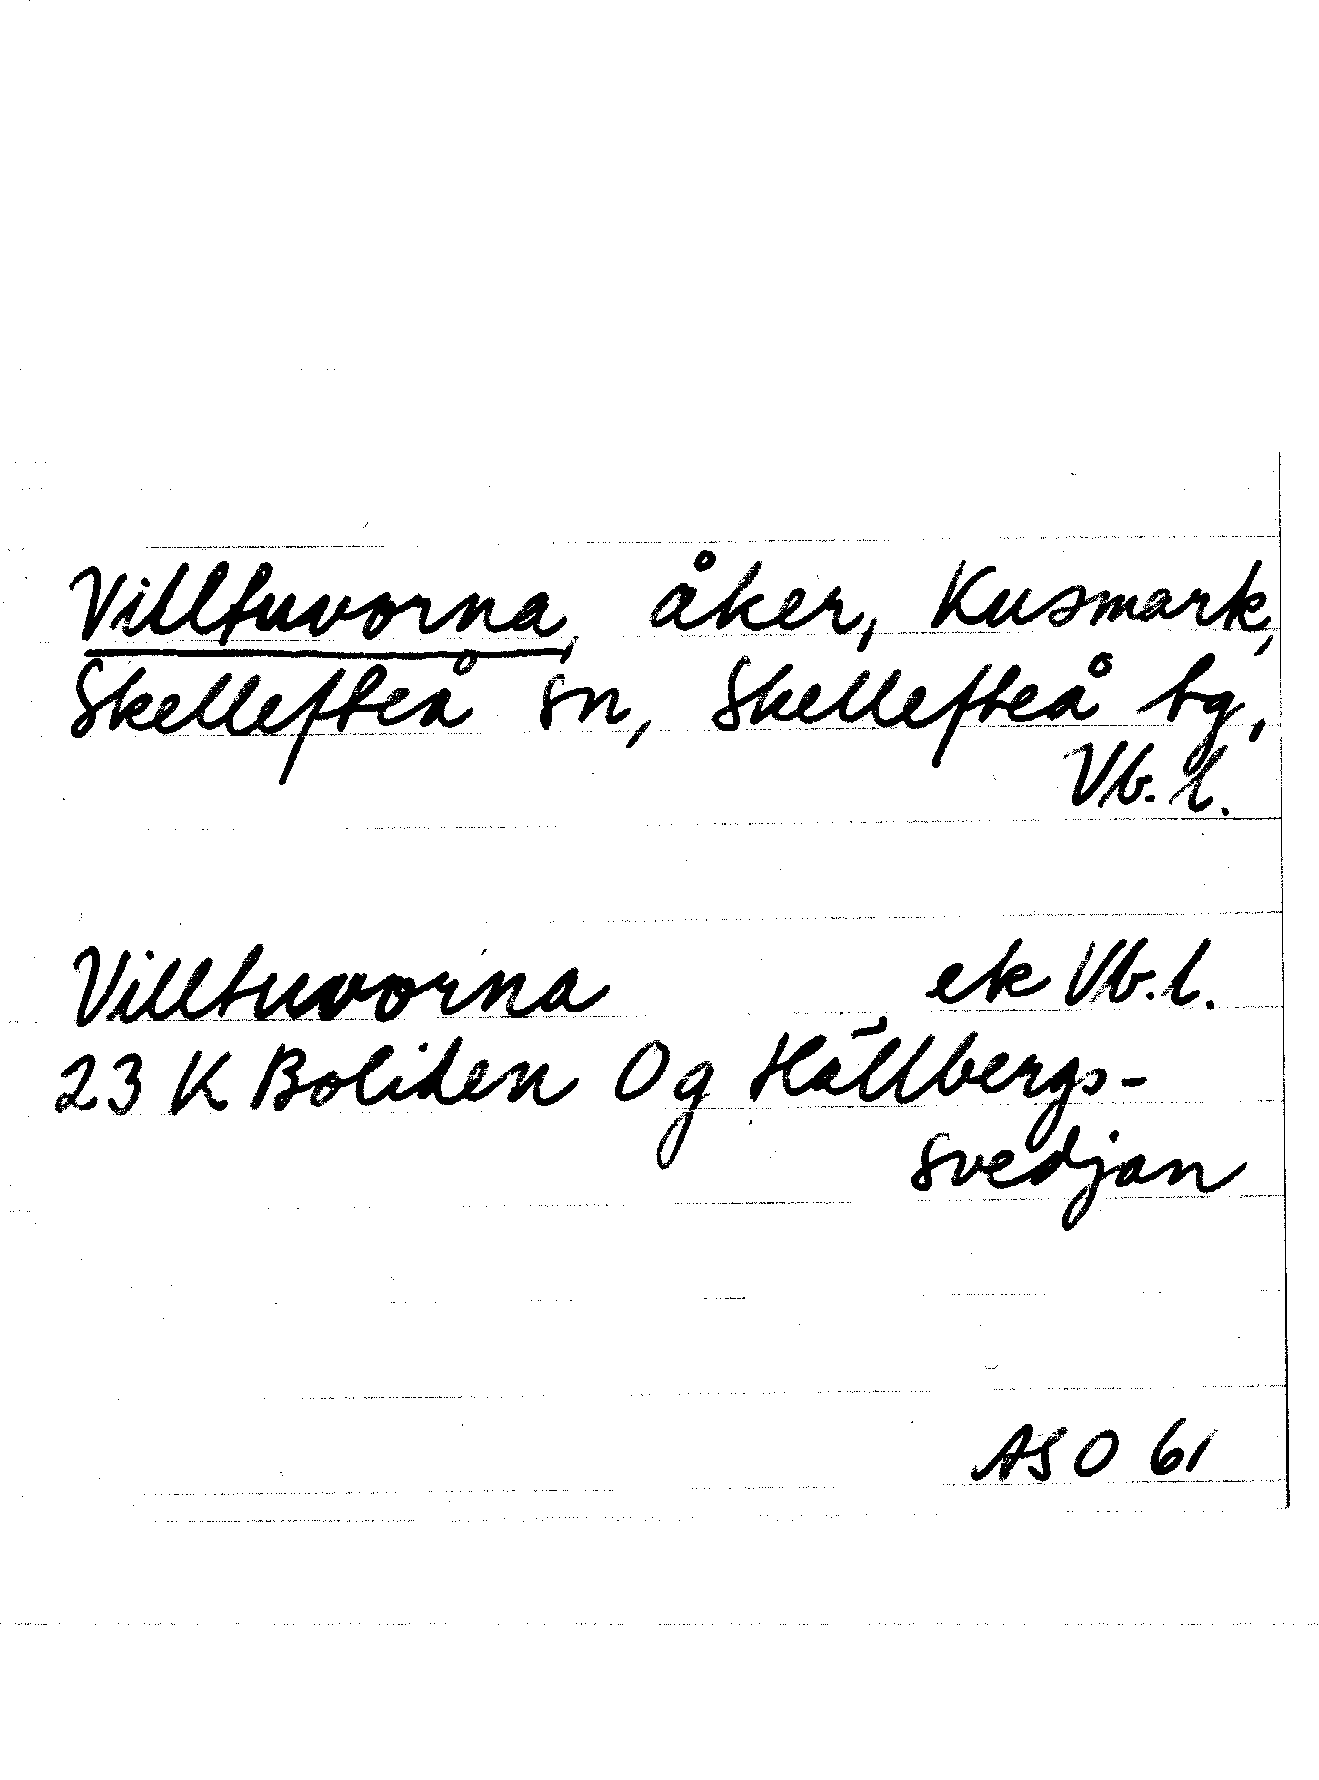 Villtuvorna, åker, Kusmark,
Skellefteå sn, Skellefteå tg,
Vb. l.
Villtuvorna ek Vb. l.
23 K Boliden Og Hällbergs-
svedjan
ASO 61